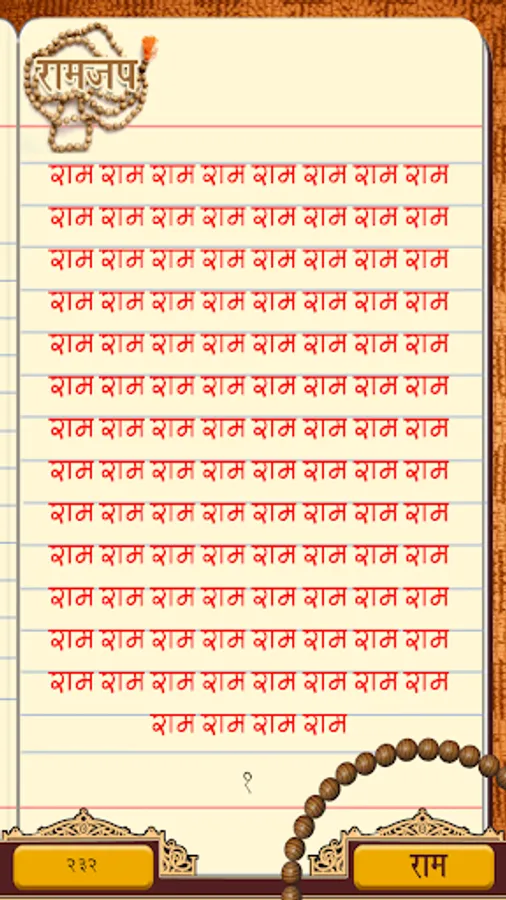 रामजप
राम राम राम राम राम राम राम राम
राम राम राम राम राम राम राम राम
राम राम राम राम राम राम राम राम
राम राम राम राम राम राम राम राम
राम राम राम राम राम राम राम राम
राम राम राम राम राम राम राम राम
राम राम राम राम राम राम राम राम
राम राम राम राम राम राम राम राम
राम राम राम राम राम राम राम राम
राम राम राम राम राम राम राम राम
राम राम राम राम राम राम राम राम
राम राम राम राम राम राम राम राम
राम राम राम राम राम राम राम राम
राम राम राम राम
१
२३२
राम